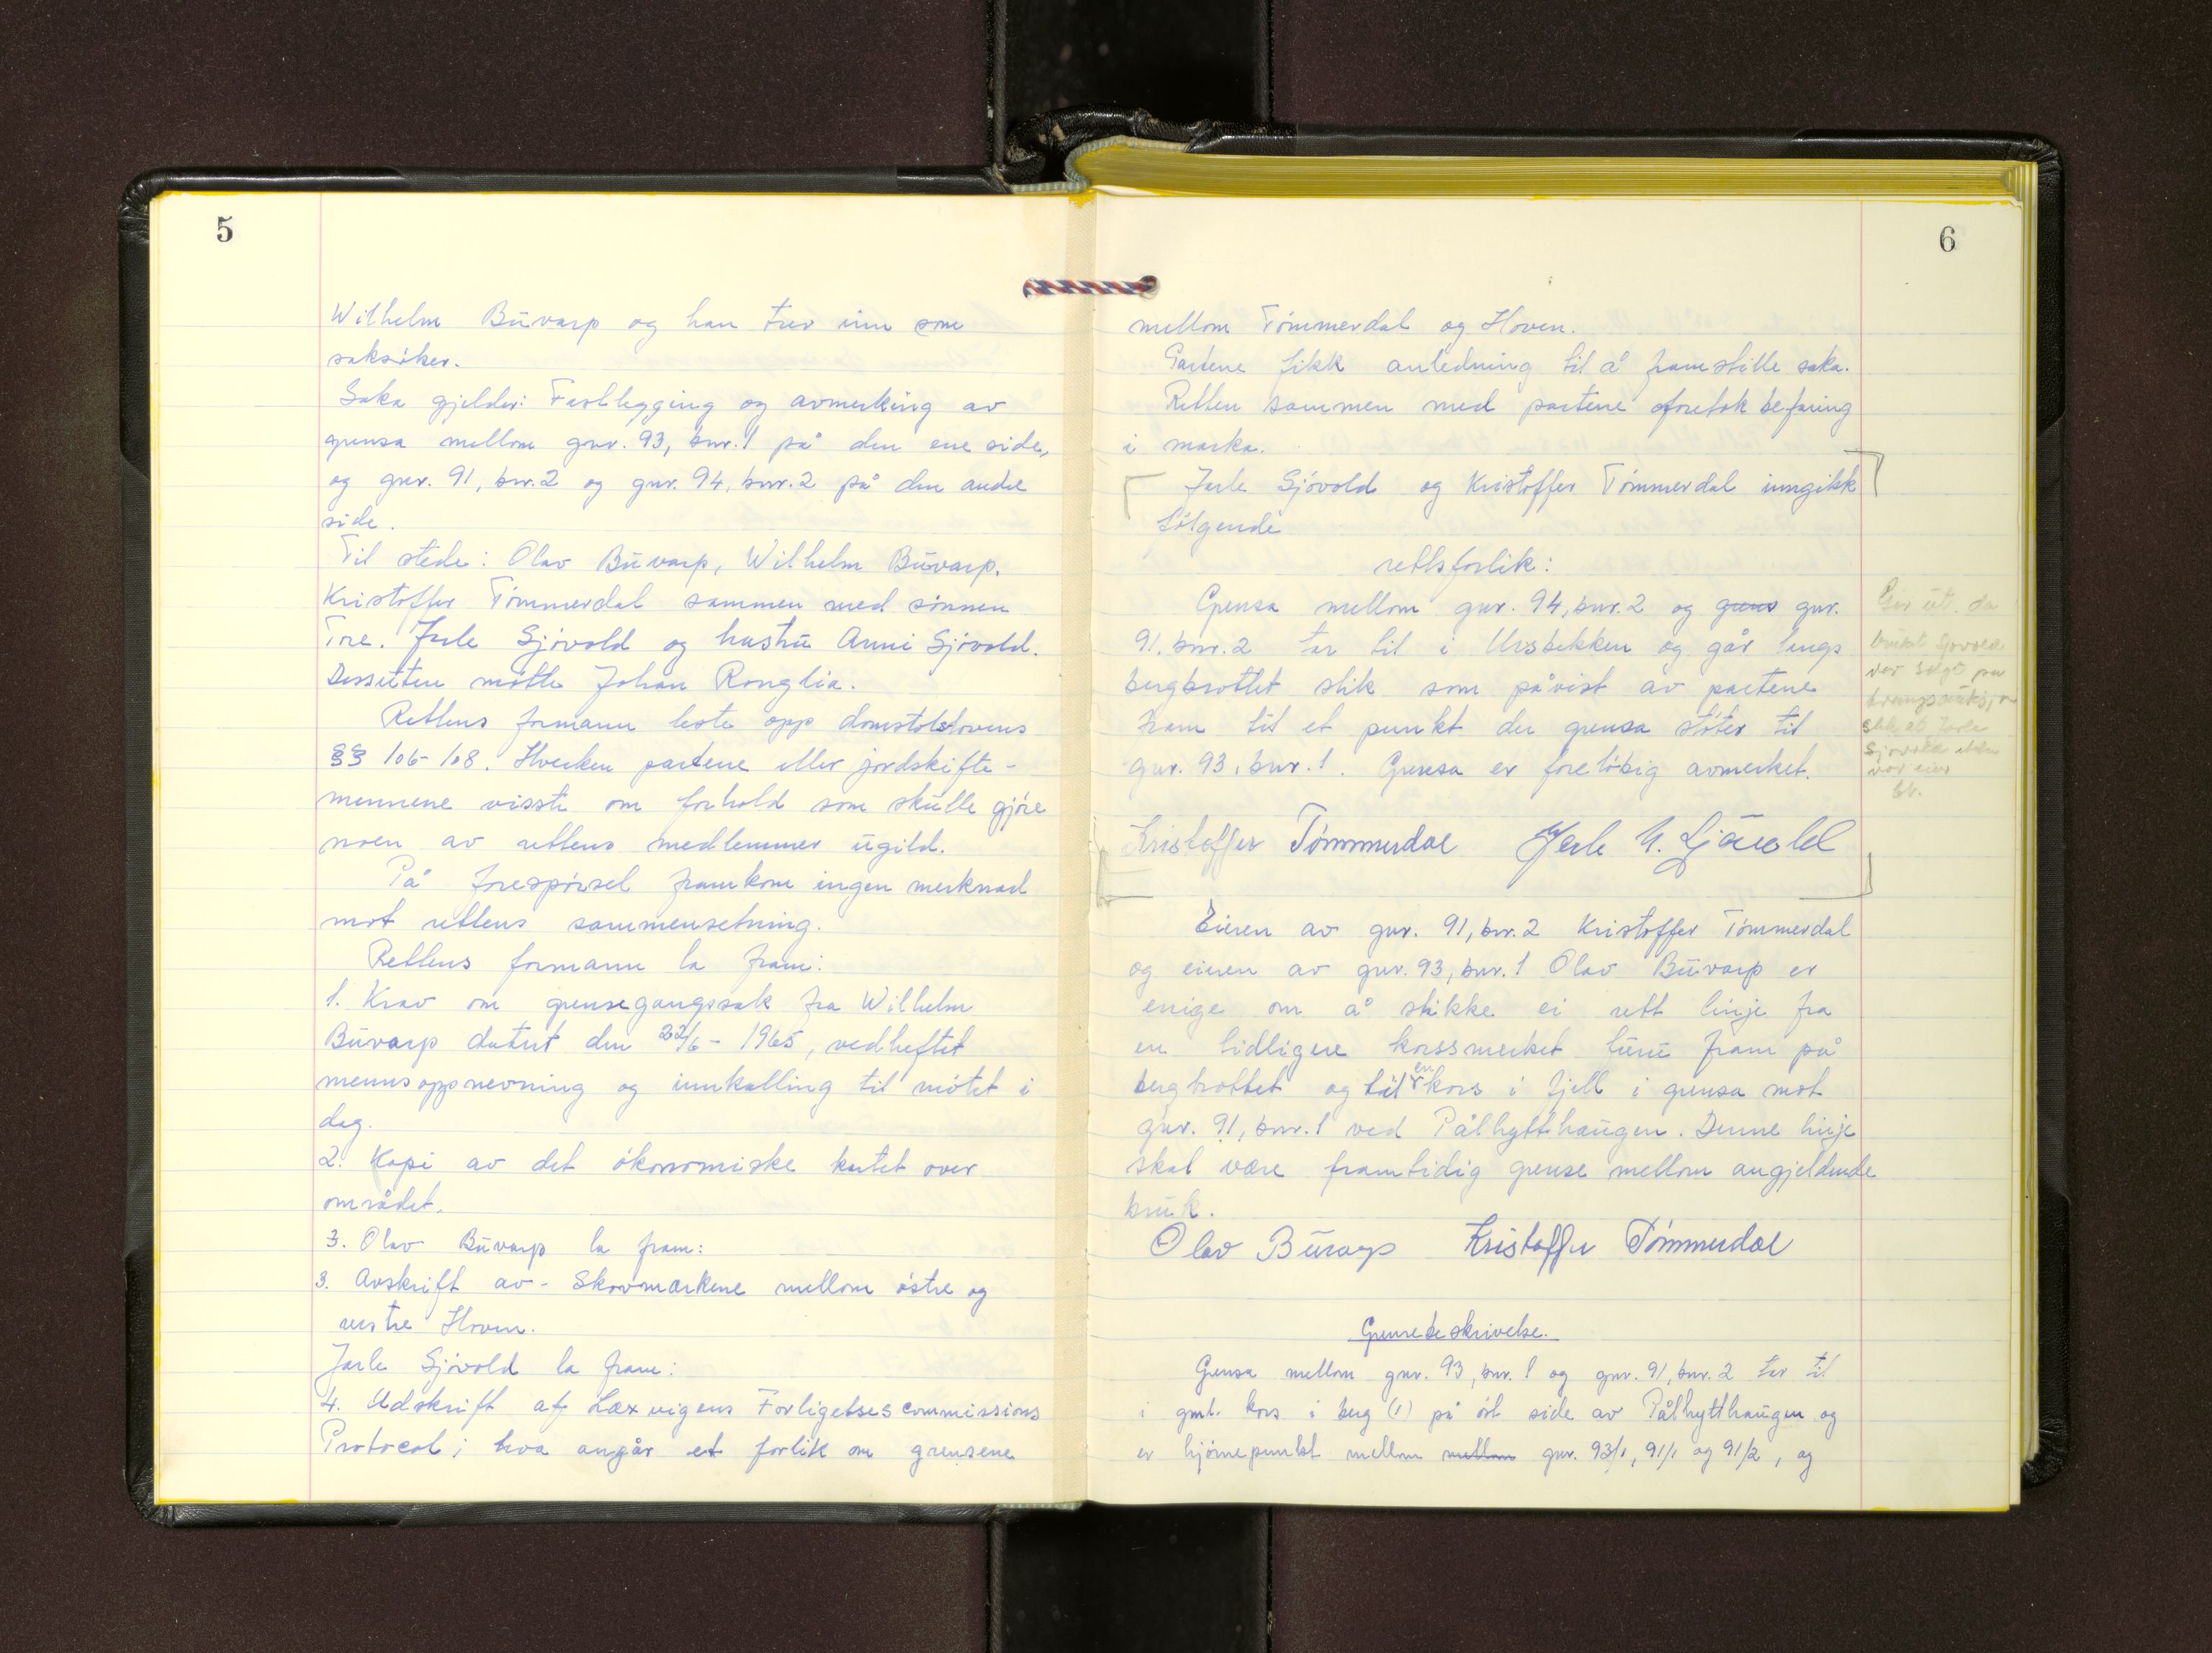 5
Wilhelm Buvarp og han trer inn som
saksøker.
Saka gjelder: Fastlegging og avmerking av
grensa mellom gnr. 93, bnr. 1 på den ene side,
og gnr. 91, bnr. 2 og gnr. 94, bnr. 2 på den andre
side.
Til stede: Olav Buvarp, Wilhelm Buvarp.
Kristoffer Tømmerdal sammen med sønnen
Tore. Jarle Sjøvold og hustru Anni Sjøvold.
Dessuten møtte Johan Ronglia.
Rettens formann leste opp domstolslovens
§§ 106-108. Hverken partene eller jordskifte-
mennene visste om forhold som skulle gjøre
noen av rettens medlemmer ugild.
På forespørsel framkom ingen merknad
mot rettens sammensetning.
Rettens formann la fram:
1. Krav om grensegangssak fra Wilhelm
Buvarp datert den 22/6 - 1965, vedheftet
mennsoppnevning og innkalling til møtet i
dag.
2. Kopi av det økonomiske kartet over
området.
3. Olav Buvarp la fram:
3. Avskrift av - Skovmærkene mellom østre og
vestre Hoven.
Jarle Sjøvold la fram:
4. Udskrift af Lexvigens Forligelsescommissions
Protocol; hva angår et forlik om grensene
6
mellom Tømmerdal og Hoven.
Partene fikk anledning til å framstille saka.
Retten sammen med partene foretok befaring
i marka.
Jarle Sjøvold og Kristoffer Tømmerdal inngikk
følgende
rettsforlik:
Grensa mellom gnr. 94, bnr. 2 og grens gnr.
91. bnr. 2 tar til i Ursbekken og går langs
bergbrottet slik som påvist av partene
fram til et punkt der grensa støter til
gnr. 93, bnr. 1. Grensa er foreløbig avmerket.
Går ut. da
bruket Sjøvold
var solgt på
tvangsauksj.
slik at Jarle
Sjøvold ikke
var eier
Kristoffer Tømmerdal Jarle M. Sjøvold
Eieren av gnr. 91, bnr. 2 Kristoffer Tømmerdal
og eieren av gnr. 93, bnr. 1 Olav Buvarp er
enige om å stikke ei rett linje fra
en tidligere korssmerket furu fram på
bergbrottet og til en kors i fjell i grensa mot
gnr. 91, bnr. 1 ved Pålhytthaugen. Denne linje
skal være framtidig grense mellom angjeldende
bruk.
Olav Buvarp Kristoffer Tømmerdal
Grensebeskrivelse.
Grensa mellom gnr. 93, bnr. 1 og gnr. 91, bnr. 2 tar til
i gml. kors i berg (1) på øst side av Pålhytthaugen og
er hjørnepunkt mellom mellom gnr. 93/1, 91/1 og 91/2, og